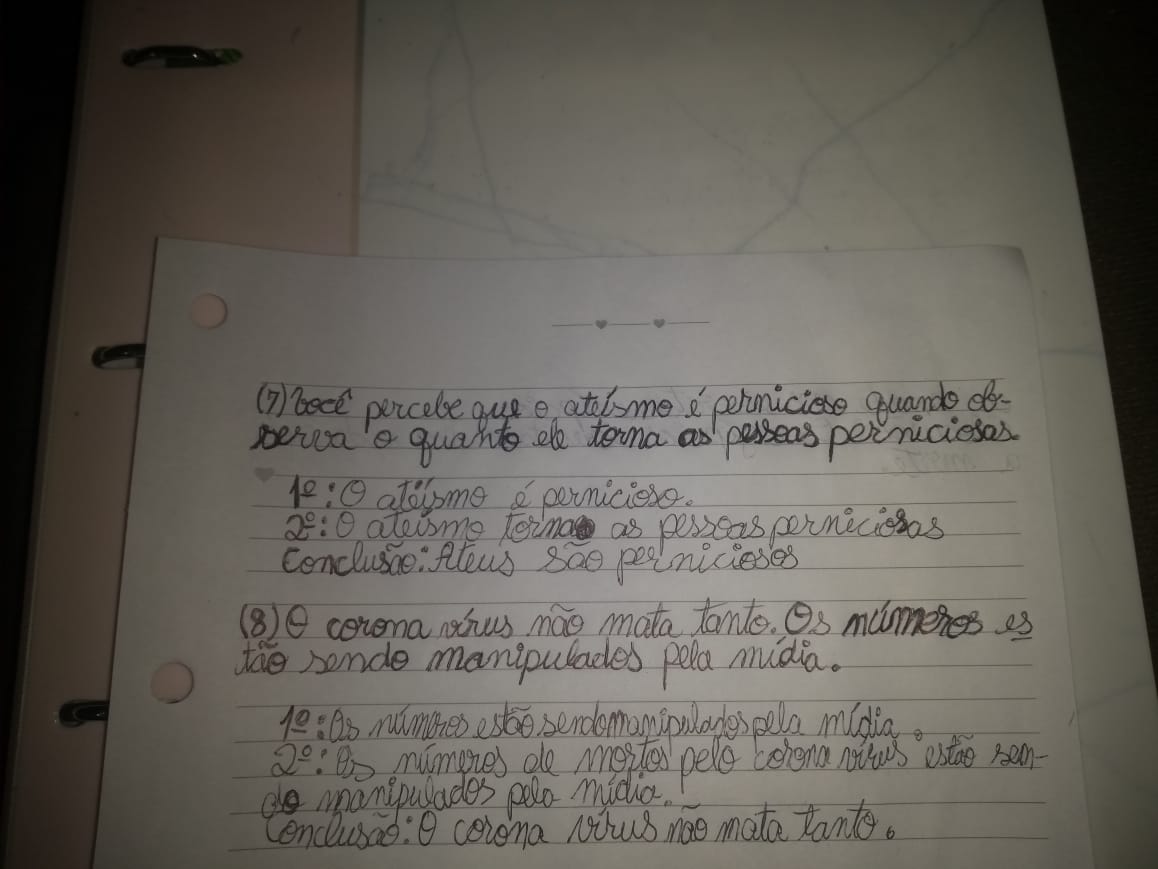 (7) Você percebe que o ateísmo é pernicioso quando ob-
serva o quanto ele torna as pessoas perniciosas.
1º: O ateísmo é pernicioso.
2º: O ateísmo torna as pessoas perniciosas
Conclusão: Ateus são perniciosos
(8) O corona vírus não mata tanto. Os números es
tão sendo manipulados pela mídia.
1º: Os números estão sendo manipulados pela mídia.
2º: Os números de mortos pelo corona vírus estão sen-
do manipulados pela mídia.
Conclusão: O corona vírus não mata tanto.